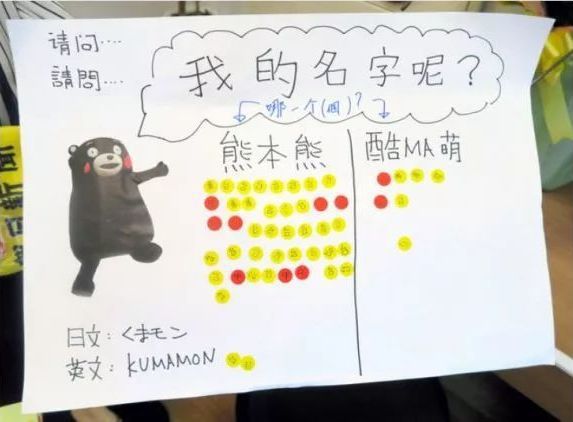 请问…
請問…
我的名字呢？
哪一个(個)？
熊本熊
酷MA萌
日文：くまモン
英文：KUMAMON